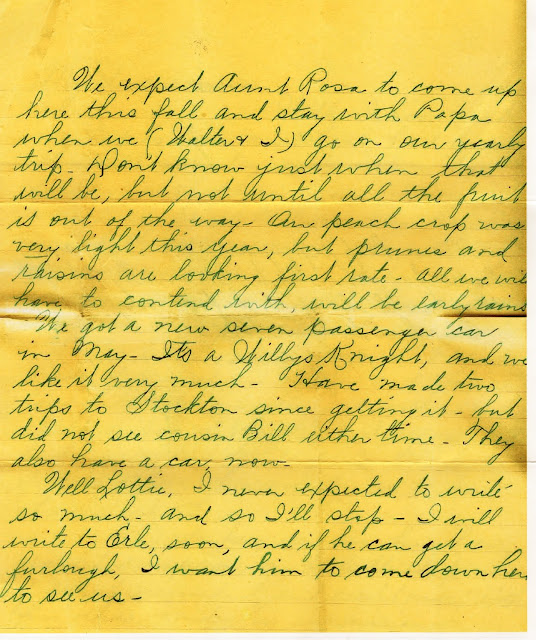 We expect Aunt Rosa to come up
here this fall and stay with Papa
when we (Walter & I) go on our yearly
trip - Don't know just when that
will be, but not until all the fruit
is out of the way - Our peach crop was
very light this year, but prunes and
raisins are looking first rate - all we will
have to contend with, will be early rains
We got a new seven passenger car
in May - It's a Willys Knight, and we
like it very much - Have made two
trips to Stockton since getting it - but
did not see cousin Bill either time - They
also have a car, now -
Well Lottie, I never expected to write
so much - and so I'll stop - I will
write to Erle, soon, and if he can get a
furlough, I want him to come down here
to see us -